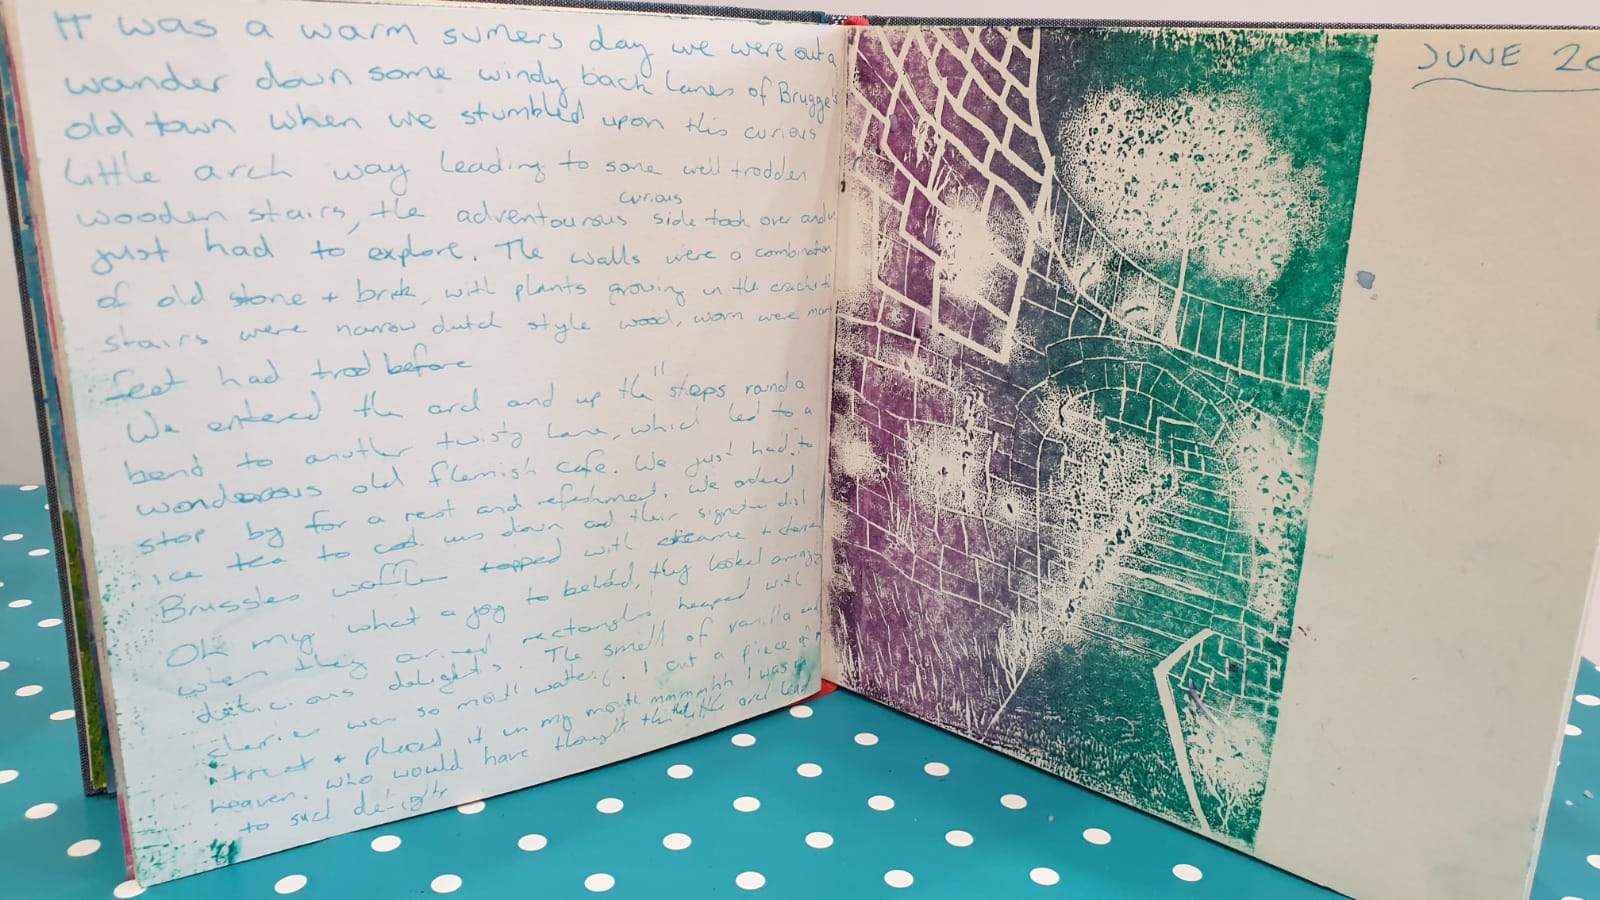 It was a warm sumers day we were out a
wander down some windy back lanes of Brugge's
old town when we stumbled upon this curious
little arch way leading to some well trodden
curious
wooden stairs, the adventourous side took over and
just had to explore. The walls were a combination
of old stone + brick, with plants growing in the cracks th
stairs were narrow dutch style wood, worn were many
feet had trod before
We entered the arch and up the steps round a
bend to another twisty lane, which led to a
wonderous old flemish cafe. We just had to
stop by for a rest and refreshment. We ordered
ice tea to cool us down and their signature dish
Brussles waffle topped with creame + cherries
Oh my what a joy to behold, they looked amazing
when they arrived rectangles heaped with
delicious delights. The smell of vanilla and
cherries was so mouth watering. I cut a piece of
treat + placed it in my mouth mmmmhh I was in
heaven. who would have thought that little arch lead
to such delights
JUNE 20